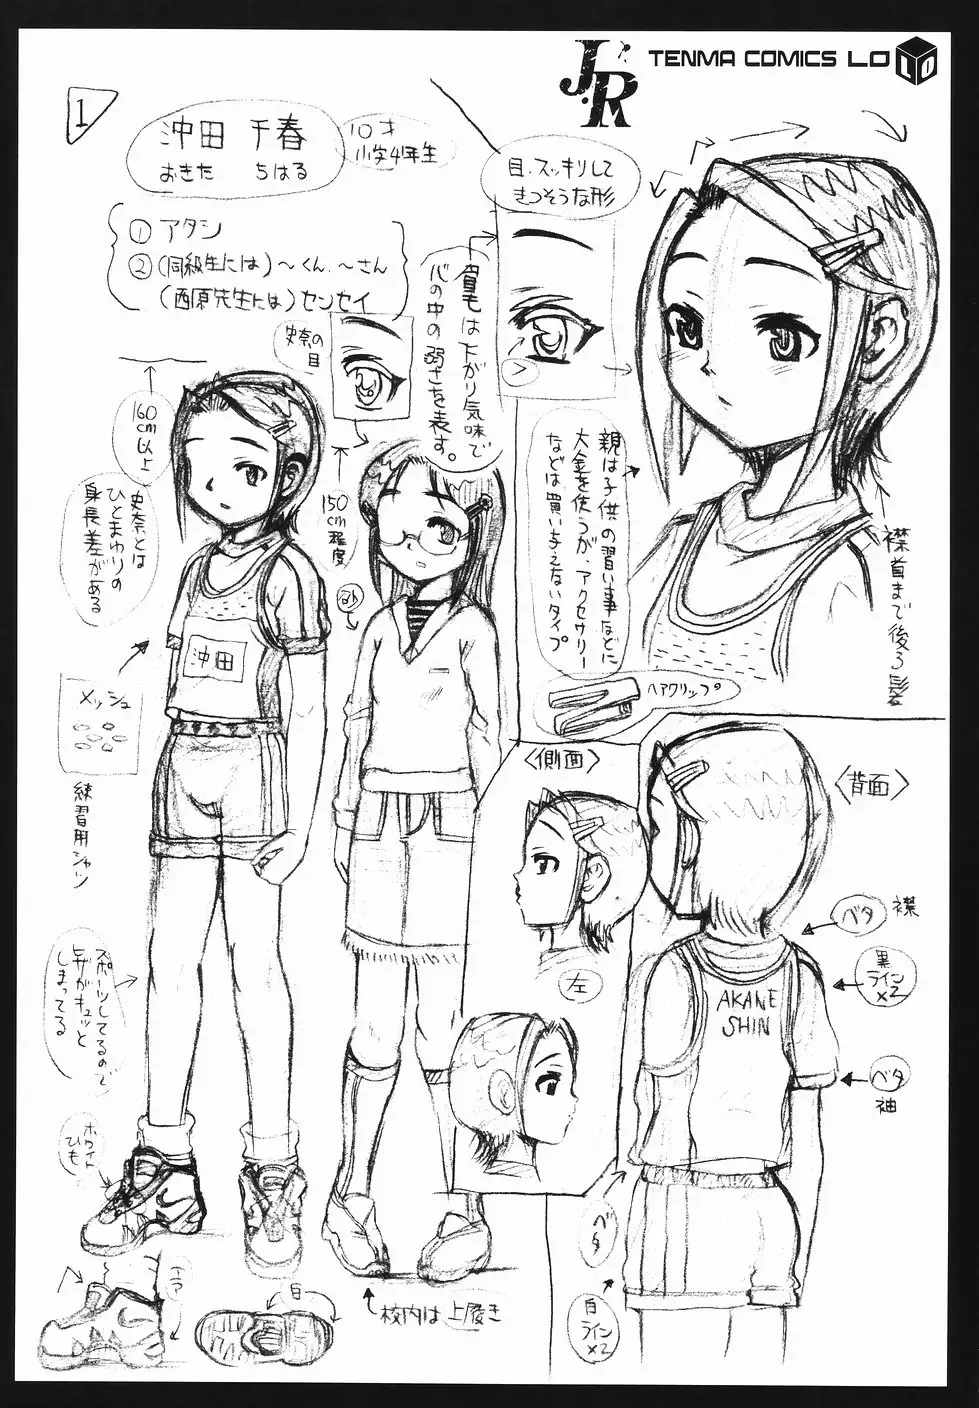 JR
TENMA COMICS LO
LO
1
沖田 千春
おきた ちはる
10才
小学4年生
① アタシ
② (同級生には) ～くん、～さん
(西原先生には) センセイ
目、スッキリして
きつそうな形
眉毛は下がり気味で
心の中の弱さを表す。
史奈の
目
160
cm
以上
史奈とは
ひとまわりの
身長差がある
150
cm
程度
親は子供の習い事などに
大金を使うが、アクセサリー
などは買い与えないタイプ
襟首まで後ろ髪
ヘアクリップ
沖田
メッシュ
練習用シャツ
〈側面〉
〈背面〉
左
ベタ
襟
黒
ライン
×2
AKANE
SHIN
ベタ
袖
スポーツしてるので
足がキュッと
しまってる
ホワイト
ひも
ベタ
白
ライン
×2
白
校内は上履き